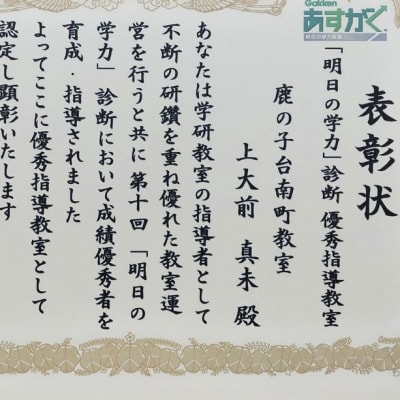 Gakken
あすがく
明日の学力診断
表彰状
「明日の学力」診断 優秀指導教室
鹿の子台南町教室
上大前 真未 殿
あなたは学研教室の指導者として
不断の研鑽を重ね優れた教室運
営を行うと共に 第十回 「明日の
学力」 診断において成績優秀者を
育成・指導されました
よってここに優秀指導教室として
認定し顕彰いたします